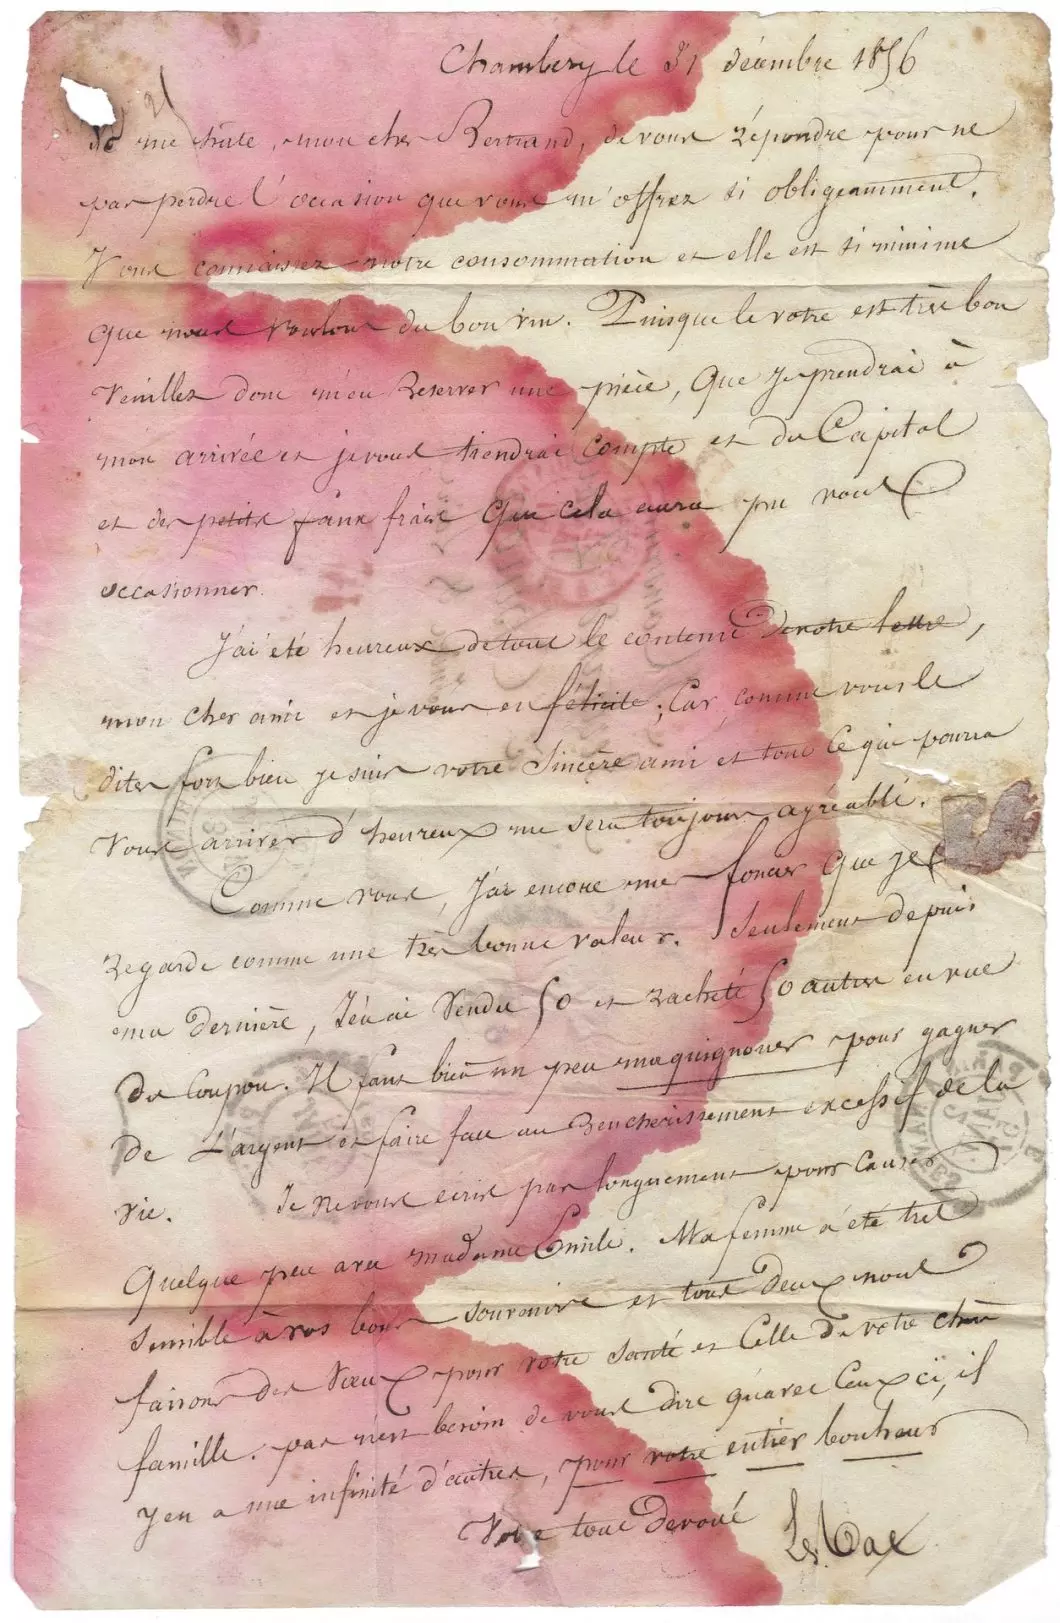 Chambery le 31 décembre 1856
Je me hâte, mon cher Bertrand, de vous répondre pour ne
pas perdre l'occasion que vous m'offrez si obligeamment.
Vous connaissez notre consommation et elle est si minime
que nous voulons du bon vin. Puisque le votre est très bon
veuillez donc m'en reserver une pièce, que je prendrai à
mon arrivée et je vous tiendrai compte et du Capital
et des petits faux frais que cela aura pu vous
occasionner.
J'ai été heureux de tout le contenu de votre lettre,
mon cher ami et je vous en félicite; Car, comme vous le
dites fort bien je suis votre sincère ami et tout ce qui pourra
vous arriver d'heureux me sera toujours agréable.
Comme vous, j'ai encore mes fonciers que je
regarde comme une très bonne valeur. Seulement depuis
ma dernière, j'en ai vendu 50 et racheté 50 autres en vue
du Coupon. Il faut bien un peu maquignoner pour gagner
de l'argent et faire face au renchérissement excessif de la
vie. Je ne vous écris pas longuement pour causer
quelque peu avec madame Emile. Ma femme a été très
sensible à vos bons souvenirs et tous deux nous
faisons des voeux pour votre santé et celle de votre chère
famille. pas n'est besoin de vous dire qu'avec ceux ci, il
y en a une infinité d'autres, pour votre entier bonheur
Votre tout dévoué